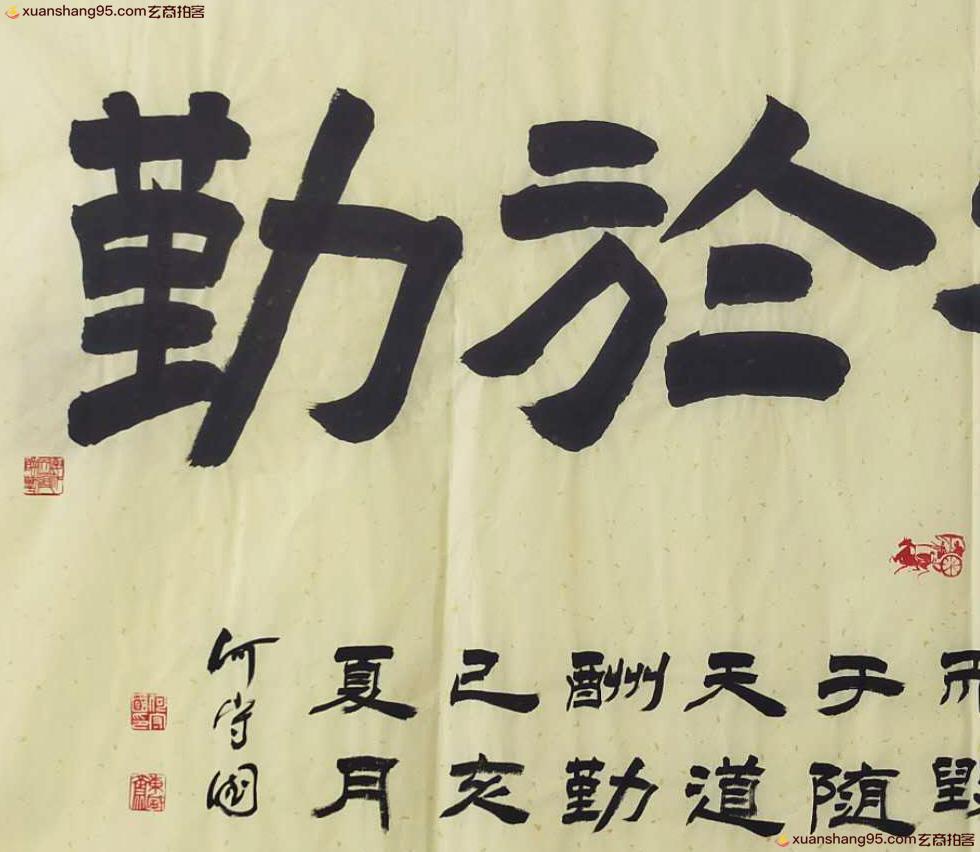 xuanshang95.com玄商拍客
於勤
毀
于随
天道
酬勤
己亥
夏月
何守國
xuanshang95.com玄商拍客